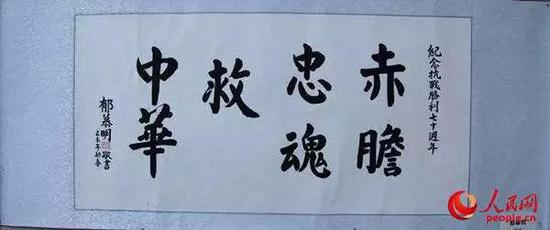 紀念抗戰勝利七十週年
赤膽
忠魂
救
中華
郁慕明
敬書
乙未年初春
人民网
people.cn